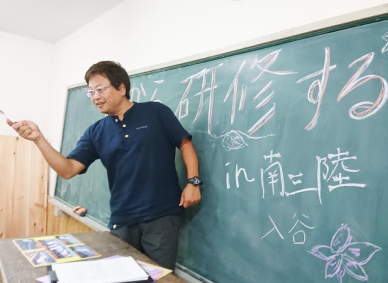 研修する
in 南三陸
入谷